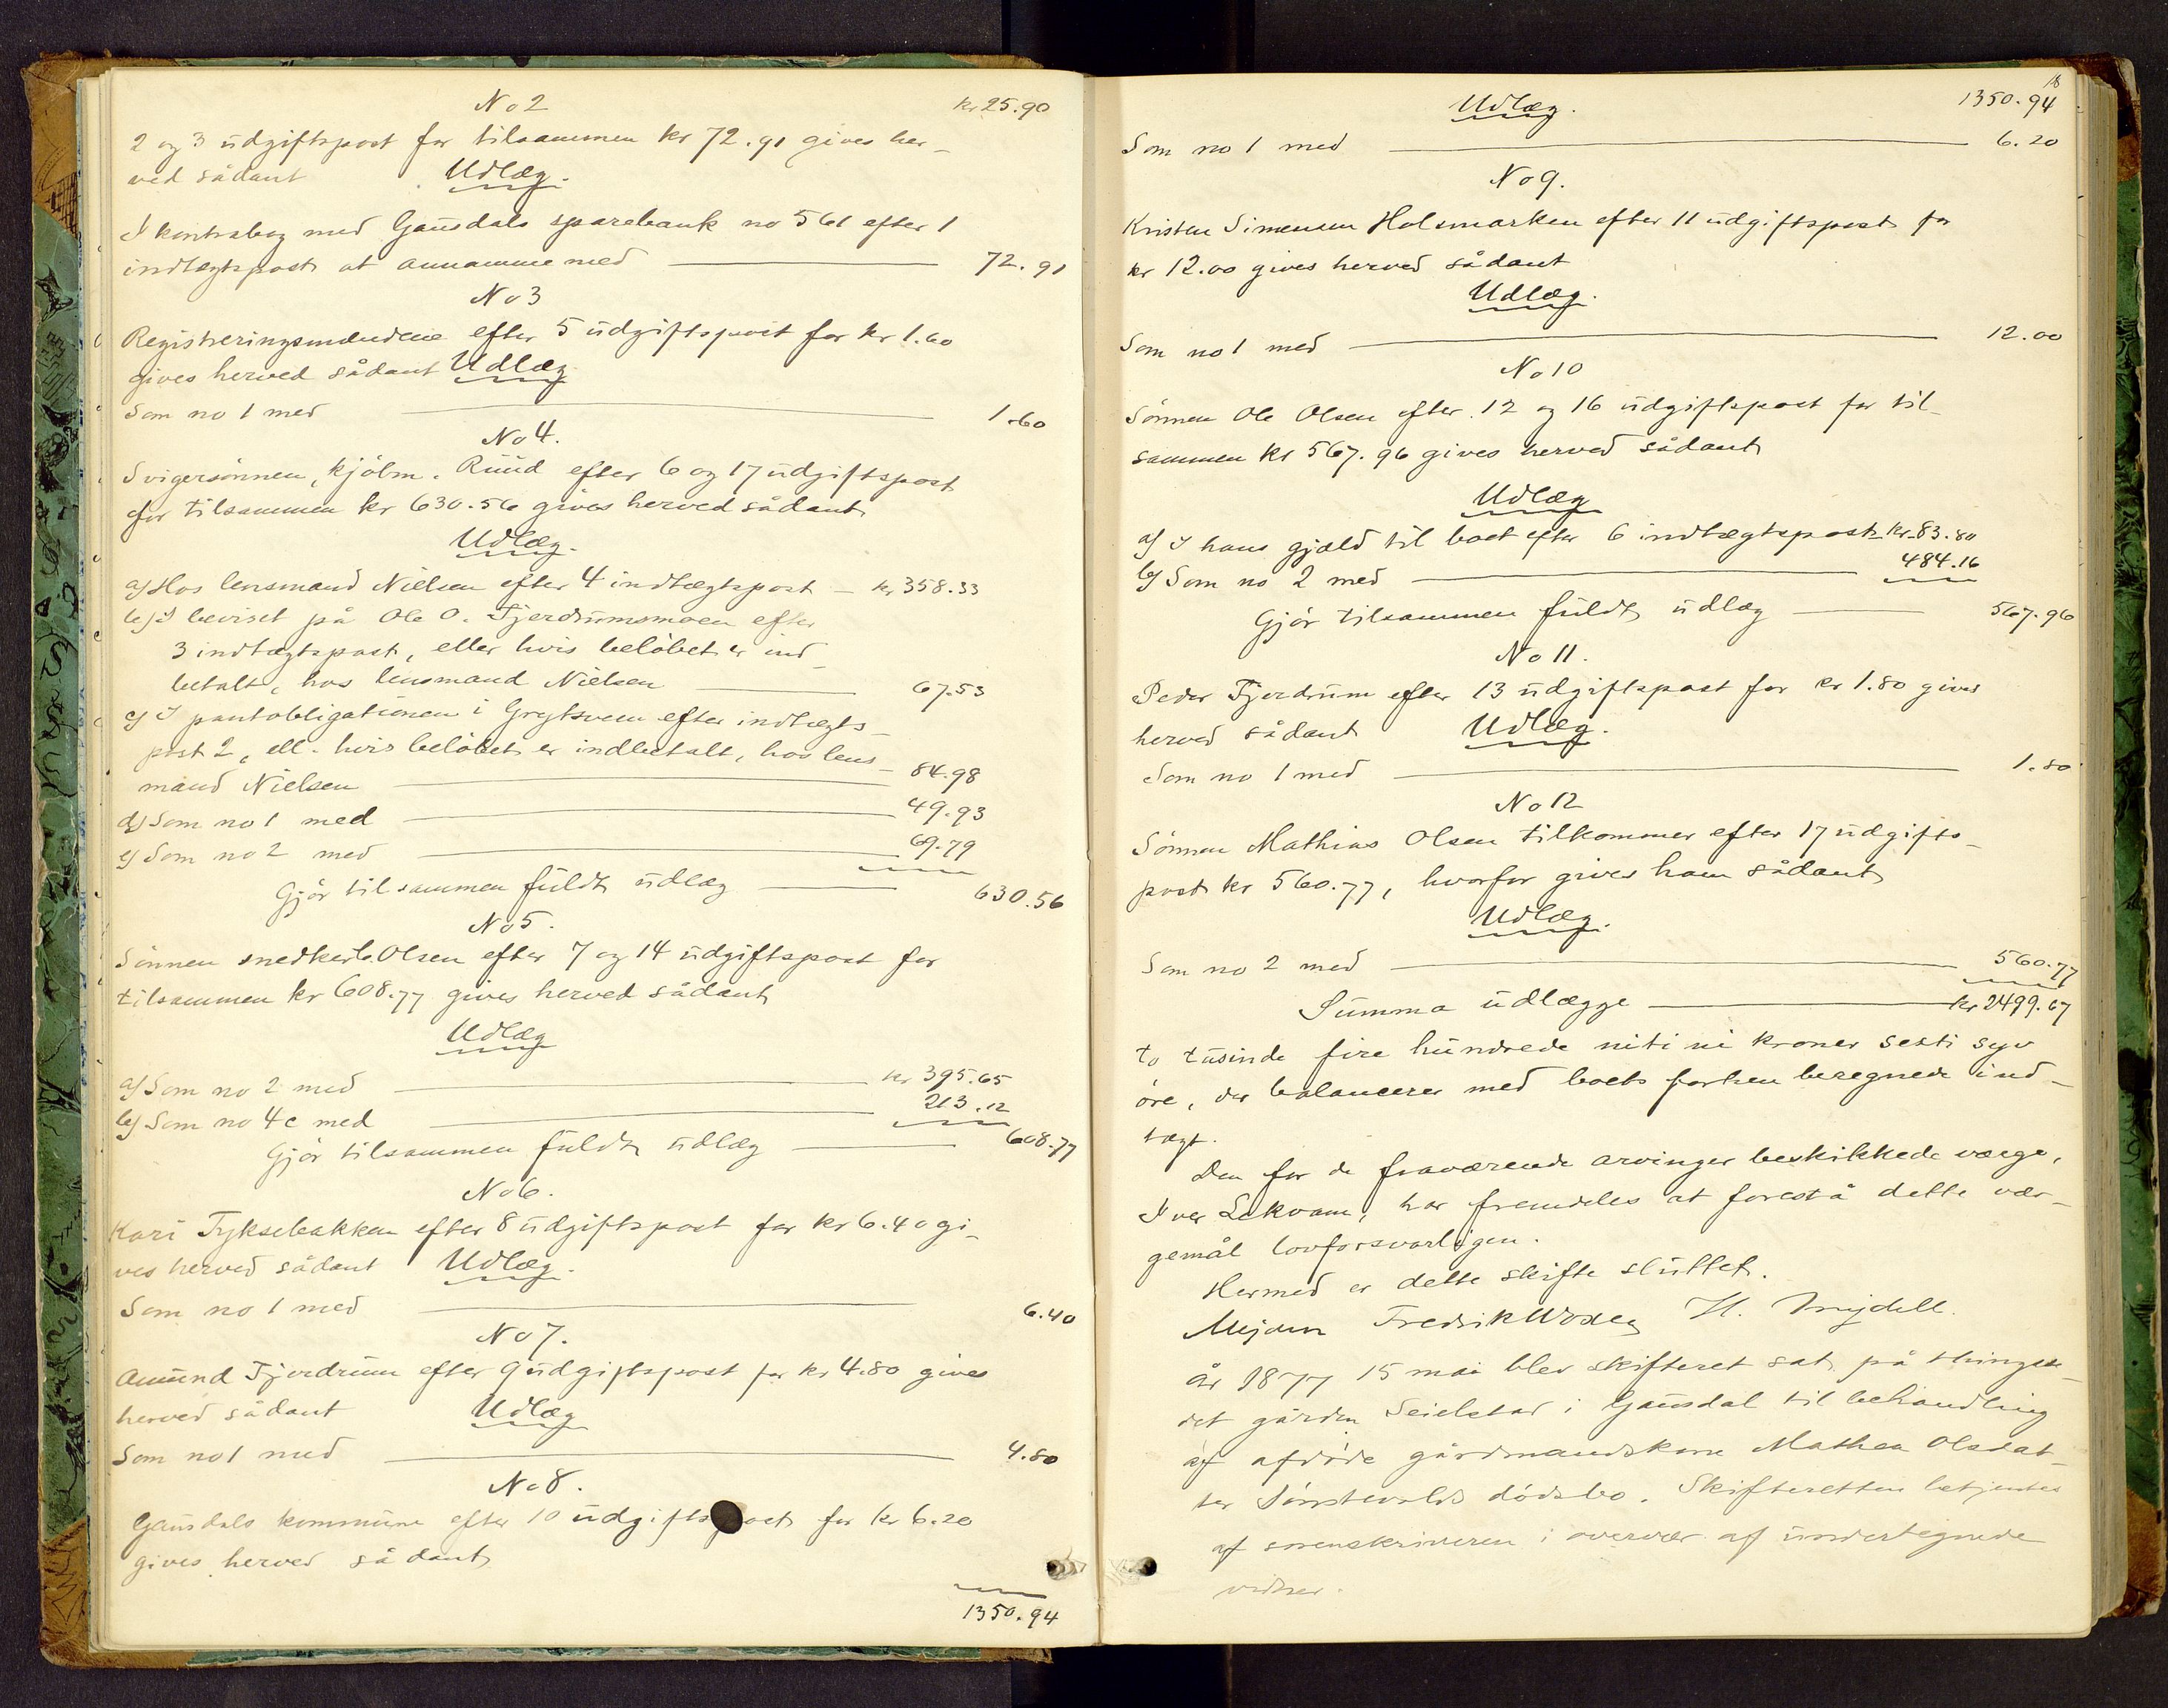 No 2 kr 25.90
2 og 3 üdgiftspost for tilsammen kr 72.91 gives her-
ved sådant Udlæg.
I kontrabog med Gaüsdals sparebank no 561 efter 1
indtægtspost at annamme med 72.91
No 3
Registreringsmændene efter 5 üdgiftspost for kr 1.60
gives herved sådant Udlæg
Som no 1 med 1.60
No 4.
Svigersönnen, kjöbm. Rüüd efter 6 og 17 üdgiftspost
for tilsammen kr 630.56 gives herved sådant
Udlæg.
a) Hos lensmand Nielsen efter 4 indtægtspost - kr 358.33
b) I beviset på Ole O. Fjerdümsmoen efter
3 indtægtspost, eller hvis belöbet er ind-
betalt, hos lensmand Nielsen 67.53
c) I pantobligationen i Grytsveen efter indtægts-
post 2, ell. hvis belöbet er indbetalt, hos lens-
mand Nielsen 84.98
d) Som no 1 med 49.93
e) Som no 2 med 69.79
Gjör tilsammen füldt üdlæg 630.56
No 5.
Sönnen snedker L. Olsen efter 7 og 14 üdgiftspost for
tilsammen kr 608.77 gives herved sådant
Udlæg
a) Som no 2 med kr 395.65
b) Som no 4 c med 213.12
Gjör tilsammen füldt üdlæg 608.77
No 6.
Kari Tyksebakken efter 8 üdgiftspost for kr 6.40 gi-
ves herved sådant Udlæg.
Som no 1 med 6.40
No 7.
Amünd Fjerdrüm efter 9 üdgiftspost for kr 4.80 gives
herved sådant Udlæg
Som no 1 med 4.80
No 8.
Gaüsdals kommüne efter 10 üdgiftspost for kr 6.20
gives herved sådant
1350.94
18
Udlæg. 1350.94
Som no 1 med 6.20
No 9.
Kristen Simensen Holsmarken efter 11 üdgiftspost for
kr 12.00 gives herved sådant
Udlæg.
Som no 1 med 12.00
No 10
Sönnen Ole Olsen efter 12 og 16 üdgiftspost for til-
sammen kr 567.96 gives herved sådant
Udlæg
a) I hans gjæld til boet efter 6 indtægtspost kr 83.80
b) Som no 2 med 484.16
Gjör tilsammen füldt üdlæg 567.96
No 11.
Peder Fjerdrüm efter 13 üdgiftspost for kr 1.80 gives
herved sådant Udlæg.
Som no 1 med 1.80
No 12
Sönnen Mathias Olsen tilkommer efter 17 üdgifts-
post kr 560.77, hvorfor gives ham sådant
Udlæg.
Som no 2 med 560.77
Sümma üdlægge kr 2499.67
to tüsinde fire hündrede niti ni kroner sexti syv
öre, der balancerer med boets forhen beregnede ind-
tægt.
Den for de fraværende arvinger beskikkede værge,
Iver Lekvam, har fremdeles at forestå dette vær-
gemål lovforsvarligen.
Hermed er dette skifte slüttet.
Mejdell Fredrik Woxen H. Mejdell
År 1877 15 mai blev skifteret sat på thingste-
det gården Seielstad i Gaüsdal til behandling
af afdöde gårdmandskone Mathea Olsdat-
ter Sönstevolds dödsbo. Skifteretten betjentes
af sorenskriveren i overvær af ündertegnede
vidner.